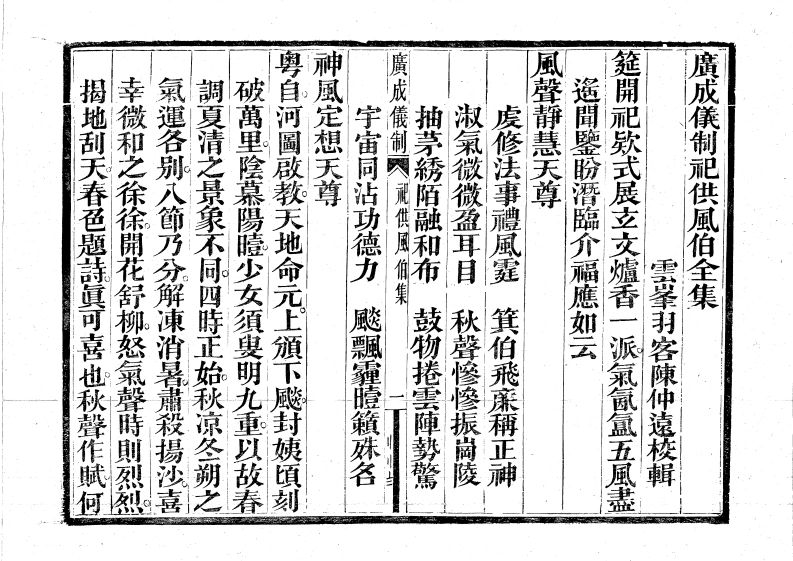 廣成儀制祀供風伯全集
雲峯羽客陳仲遠校輯
筵開祀欵式展玄文爐香一派氣氤氳五風盡
遙聞鑒盼潛臨介福應如云
風聲靜慧天尊
虔修法事禮風霆 箕伯飛廉稱正神
淑氣微微盈耳目 秋聲慘慘振崗陵
抽茅綉陌融和布 鼓物捲雲陣勢驚
廣成儀制 祀供風伯集 一
宇宙同沾功德力 飈飄霾曀籟殊名
神風定想天尊
粵自河圖啟教天地命元上頒下飈封姨頃刻
破萬里陰慕陽曀少女須叟明九重以故春
調夏清之景象不同四時正始秋凉冬朔之
氣運各別八節乃分解凍消暑肅殺揚沙喜
幸微和之徐徐開花舒柳怒氣聲時則烈烈
揭地刮天春色題詩眞可喜也秋聲作賦何